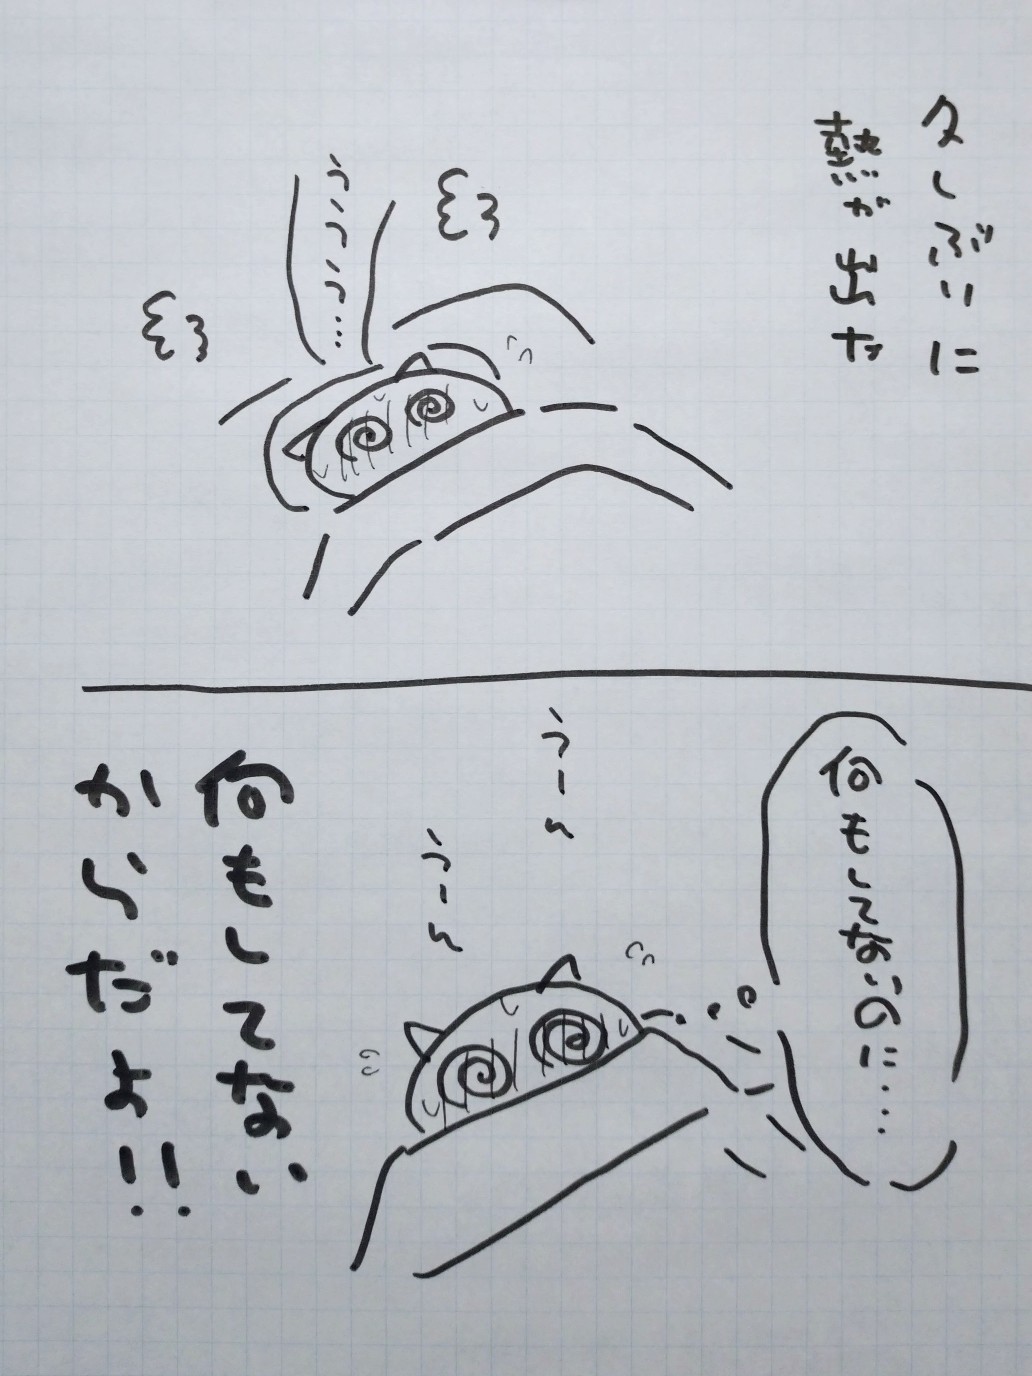 久しぶりに
熱が出た
ううう…
何もしてないのに……
うーん
うーん
何もしてない
からだよ!!